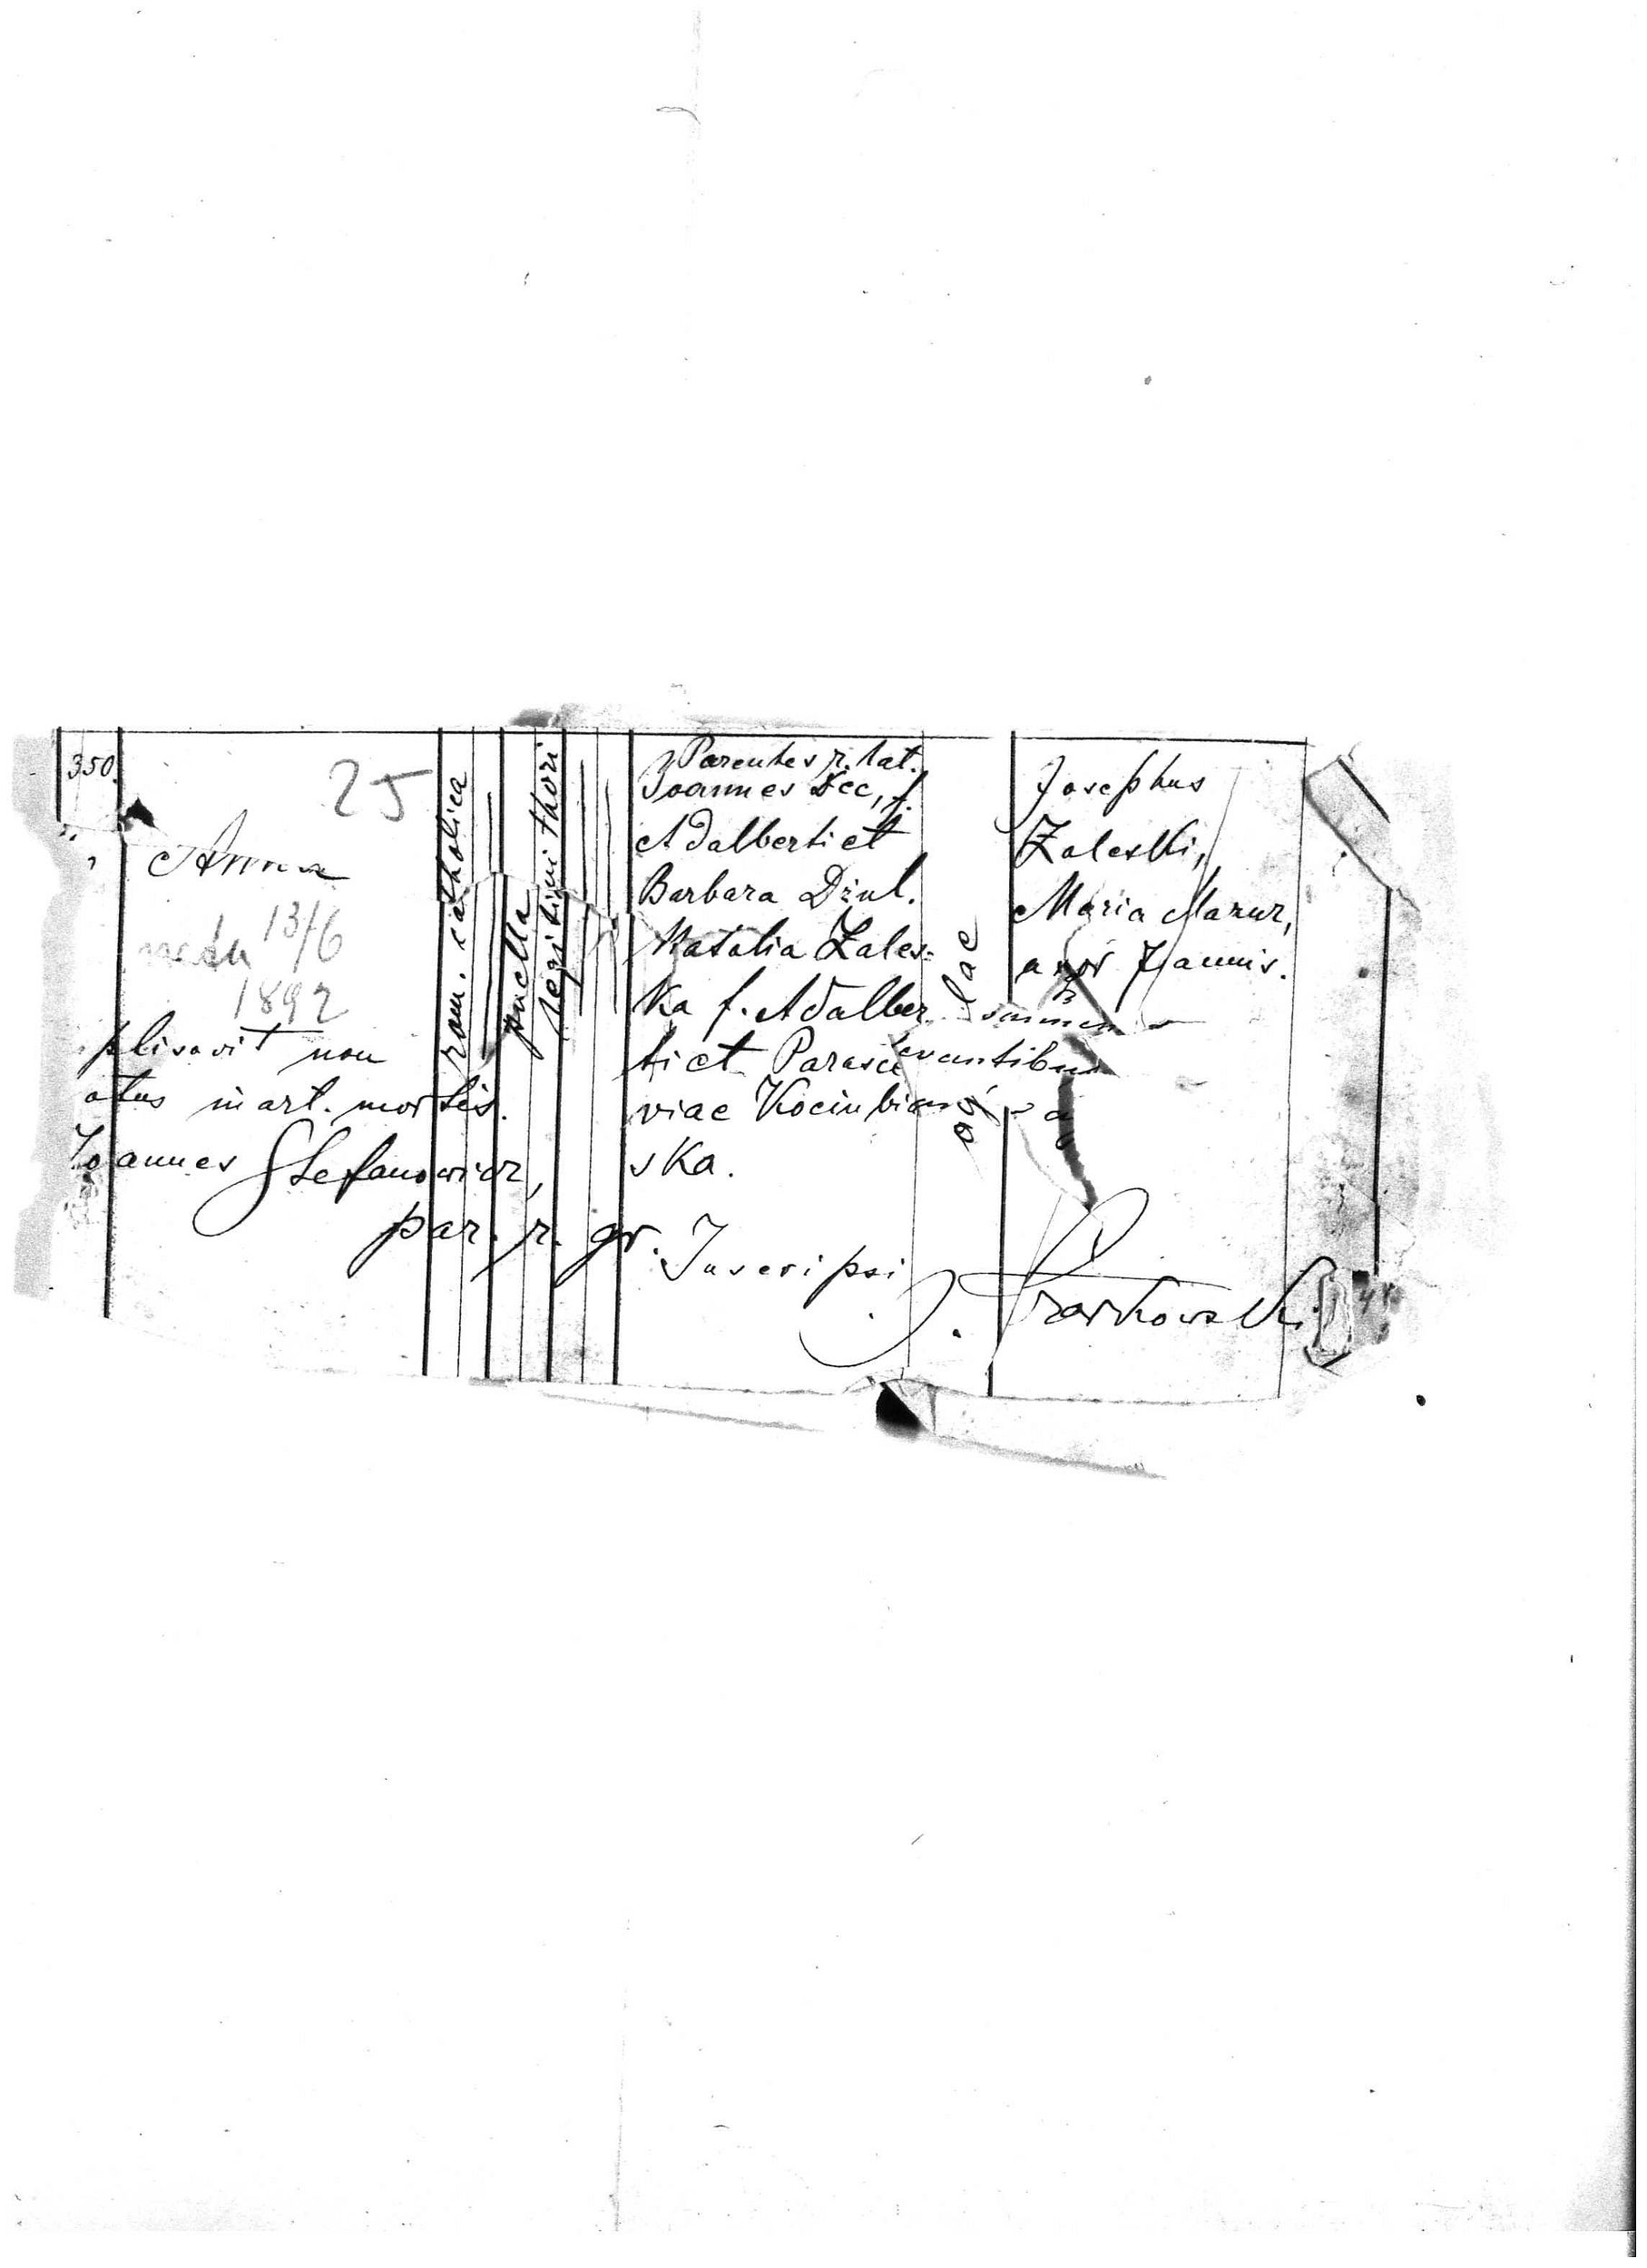 350.
25
Anna
13/6
1892
plisavit non
atus in art. mortis.
Joannes Stefanowicz,
par. r. gr.
rom. catholica
puella
legitimi thori
Parentes r. lat.
Joannes Dec, f.
Adalberti et
Barbara Dżul.
Natalia Zales-
ka f. Adalber
ti et Parasce
viae Kociubiań
ska.
evantibus
Josephus
Zaleski,
Maria Mazur,
uxor Joannis.
Inscripsi